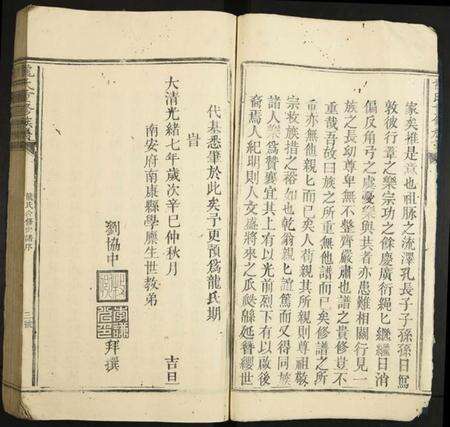 家矣惟是宣也祖脉之流澤孔長子子孫孫日篤
敦彼行葦之樂宗功之餘慶廣衍繩匕繼繼日消
偏反角弓之虞憂樂與共者亦患難相關行見一
族之長幼尊卑無不整齊嚴肅也譜之貴修豈不
重哉吾故曰族之所重無他譜而已矣修譜之所
重亦無他親匕而已矣人苟親其所親則尊祖敬
宗收族措之裕如也乾翁親匕誼篤而又得同族
諸人㮣為贊襄宜其上有以光前烈下有以啟後
裔焉人紀明則人文盛將來之瓜瓞綿延簪纓世
代基悉肇於此矣予更預為龍氏期
旹
大清光緒七年歲次辛巳仲秋月
吉旦
南安府南康縣學廩生世教弟
劉協中
拜撰
龍氏合修宗譜序